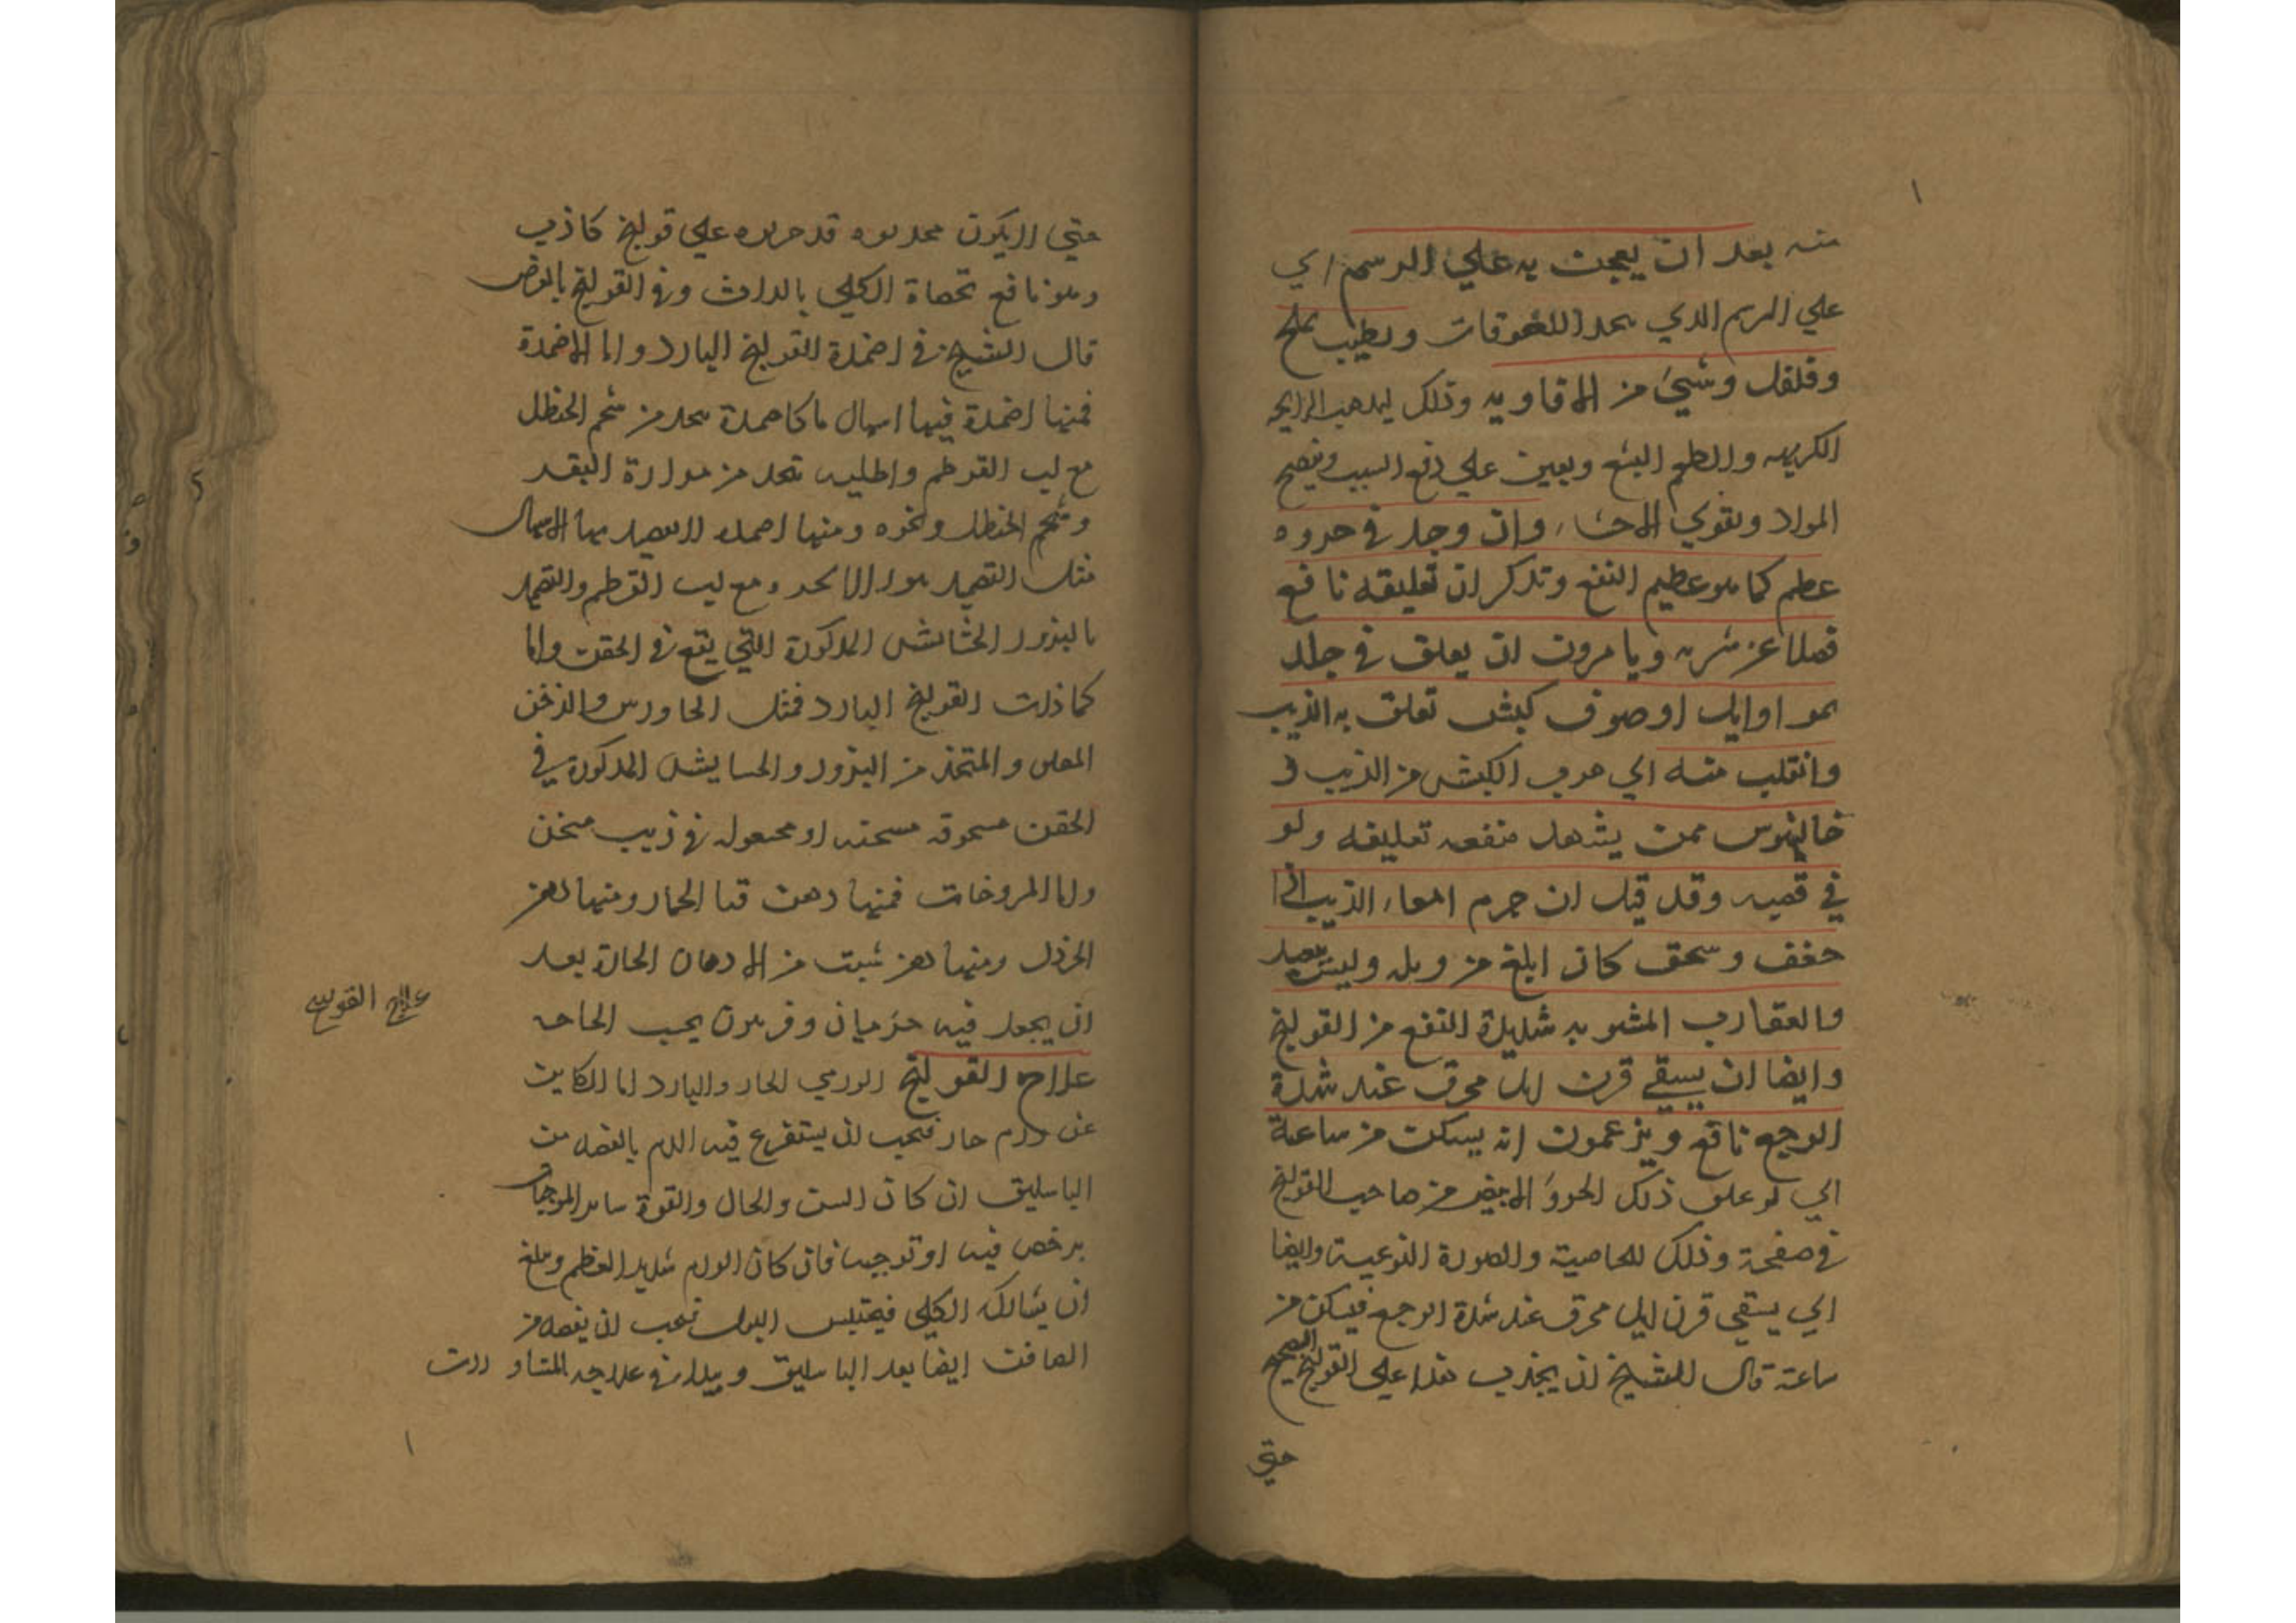 ١
منه بعد ان يعجن به علي الرسم اي
علي الرسم الدي للعوقات ويطيب بملح
وفلفل وشيئ من الافاويه وذلك ليدهب الرايحه
الكريهه والطعم البشع ويعين علي دفع السبب وينضج
المواد ويقوي الاحشاء وان وجد في حروه
عظم كما هو عظيم النفع وتدكر ان تعليقه نافع
فضلا عن شربه ويامرون ان يعلق في جلد
او ايل او صوف كبش تعلق به الذيب
وانقلب منه الي الكبش من الذيب و
جالينوس ممن يشهد منفعه تعليقه ولو
في وقد قيل ان جرم امعاء الذيب اذا
جفف وسحق كان ابلغ من وليس
والعقارب المشويه شديدة النفع من القولنج
وايضا ان يسقي قرن ايل محرق عند شدة
الوجع نافع ويزعمون انه يسكن من ساعة
الي لو علق ذلك الحروَ الابيض من صاحب القولنج
في صفحة وذلك للخاصية والصورة النوعية وايضا
اي يسقي قرن ايل محرق عند شدة الوجع فيسكن من
ساعته قال الشيخ ان يجذب علي القولنج الصحيح
حتي
حتي لايكون علي قولنج كاذب
وهو نافع الكلي وفي القولنج بالعرض
قال الشيخ في اضمدة القولنج البارد واما الاضمدة
فمنها اضمدة فيها اسهال من شحم الحنظل
مع لب القرطم واطليه تتخد من مرارة البقر
وشحم الحنظل ونحوه ومنها الاسهال
مثل التضميد مع لب القرطم والتضميد
بالبذور الحشايش المدكورة التي يقع في الحقن واما
كمادات القولنج البارد فمثل الجاورس والدخن
والمتخذ من البزور والحشايش المدكورة في
الحقن مسحوقه مسخنه او مجعوله في زيت مسخن
واما المروخات فمنها دهن قثا الحمار ومنها دهن
الخردل ومنها دهن شبت من الادهان الحارة بعد
ان يجعل فيه وفربيون بحسب الحاجه
علاج القولنج
علاج القولنج الورمي الحار والبارد اما الكاين
عن ورم حار فيجب ان يستفرغ فيه الدم بالفصد من
الباسليق ان كان السن والحال والقوة ساير الموجبات
يرخص فيه او توجبه فان كان الورم شديد العظم ويبلغ
ان يشارك الكلي فيحتبس البول فيجب ان يفصد من
الصافن ايضا بعد الباسليق ويبدا في علاجه